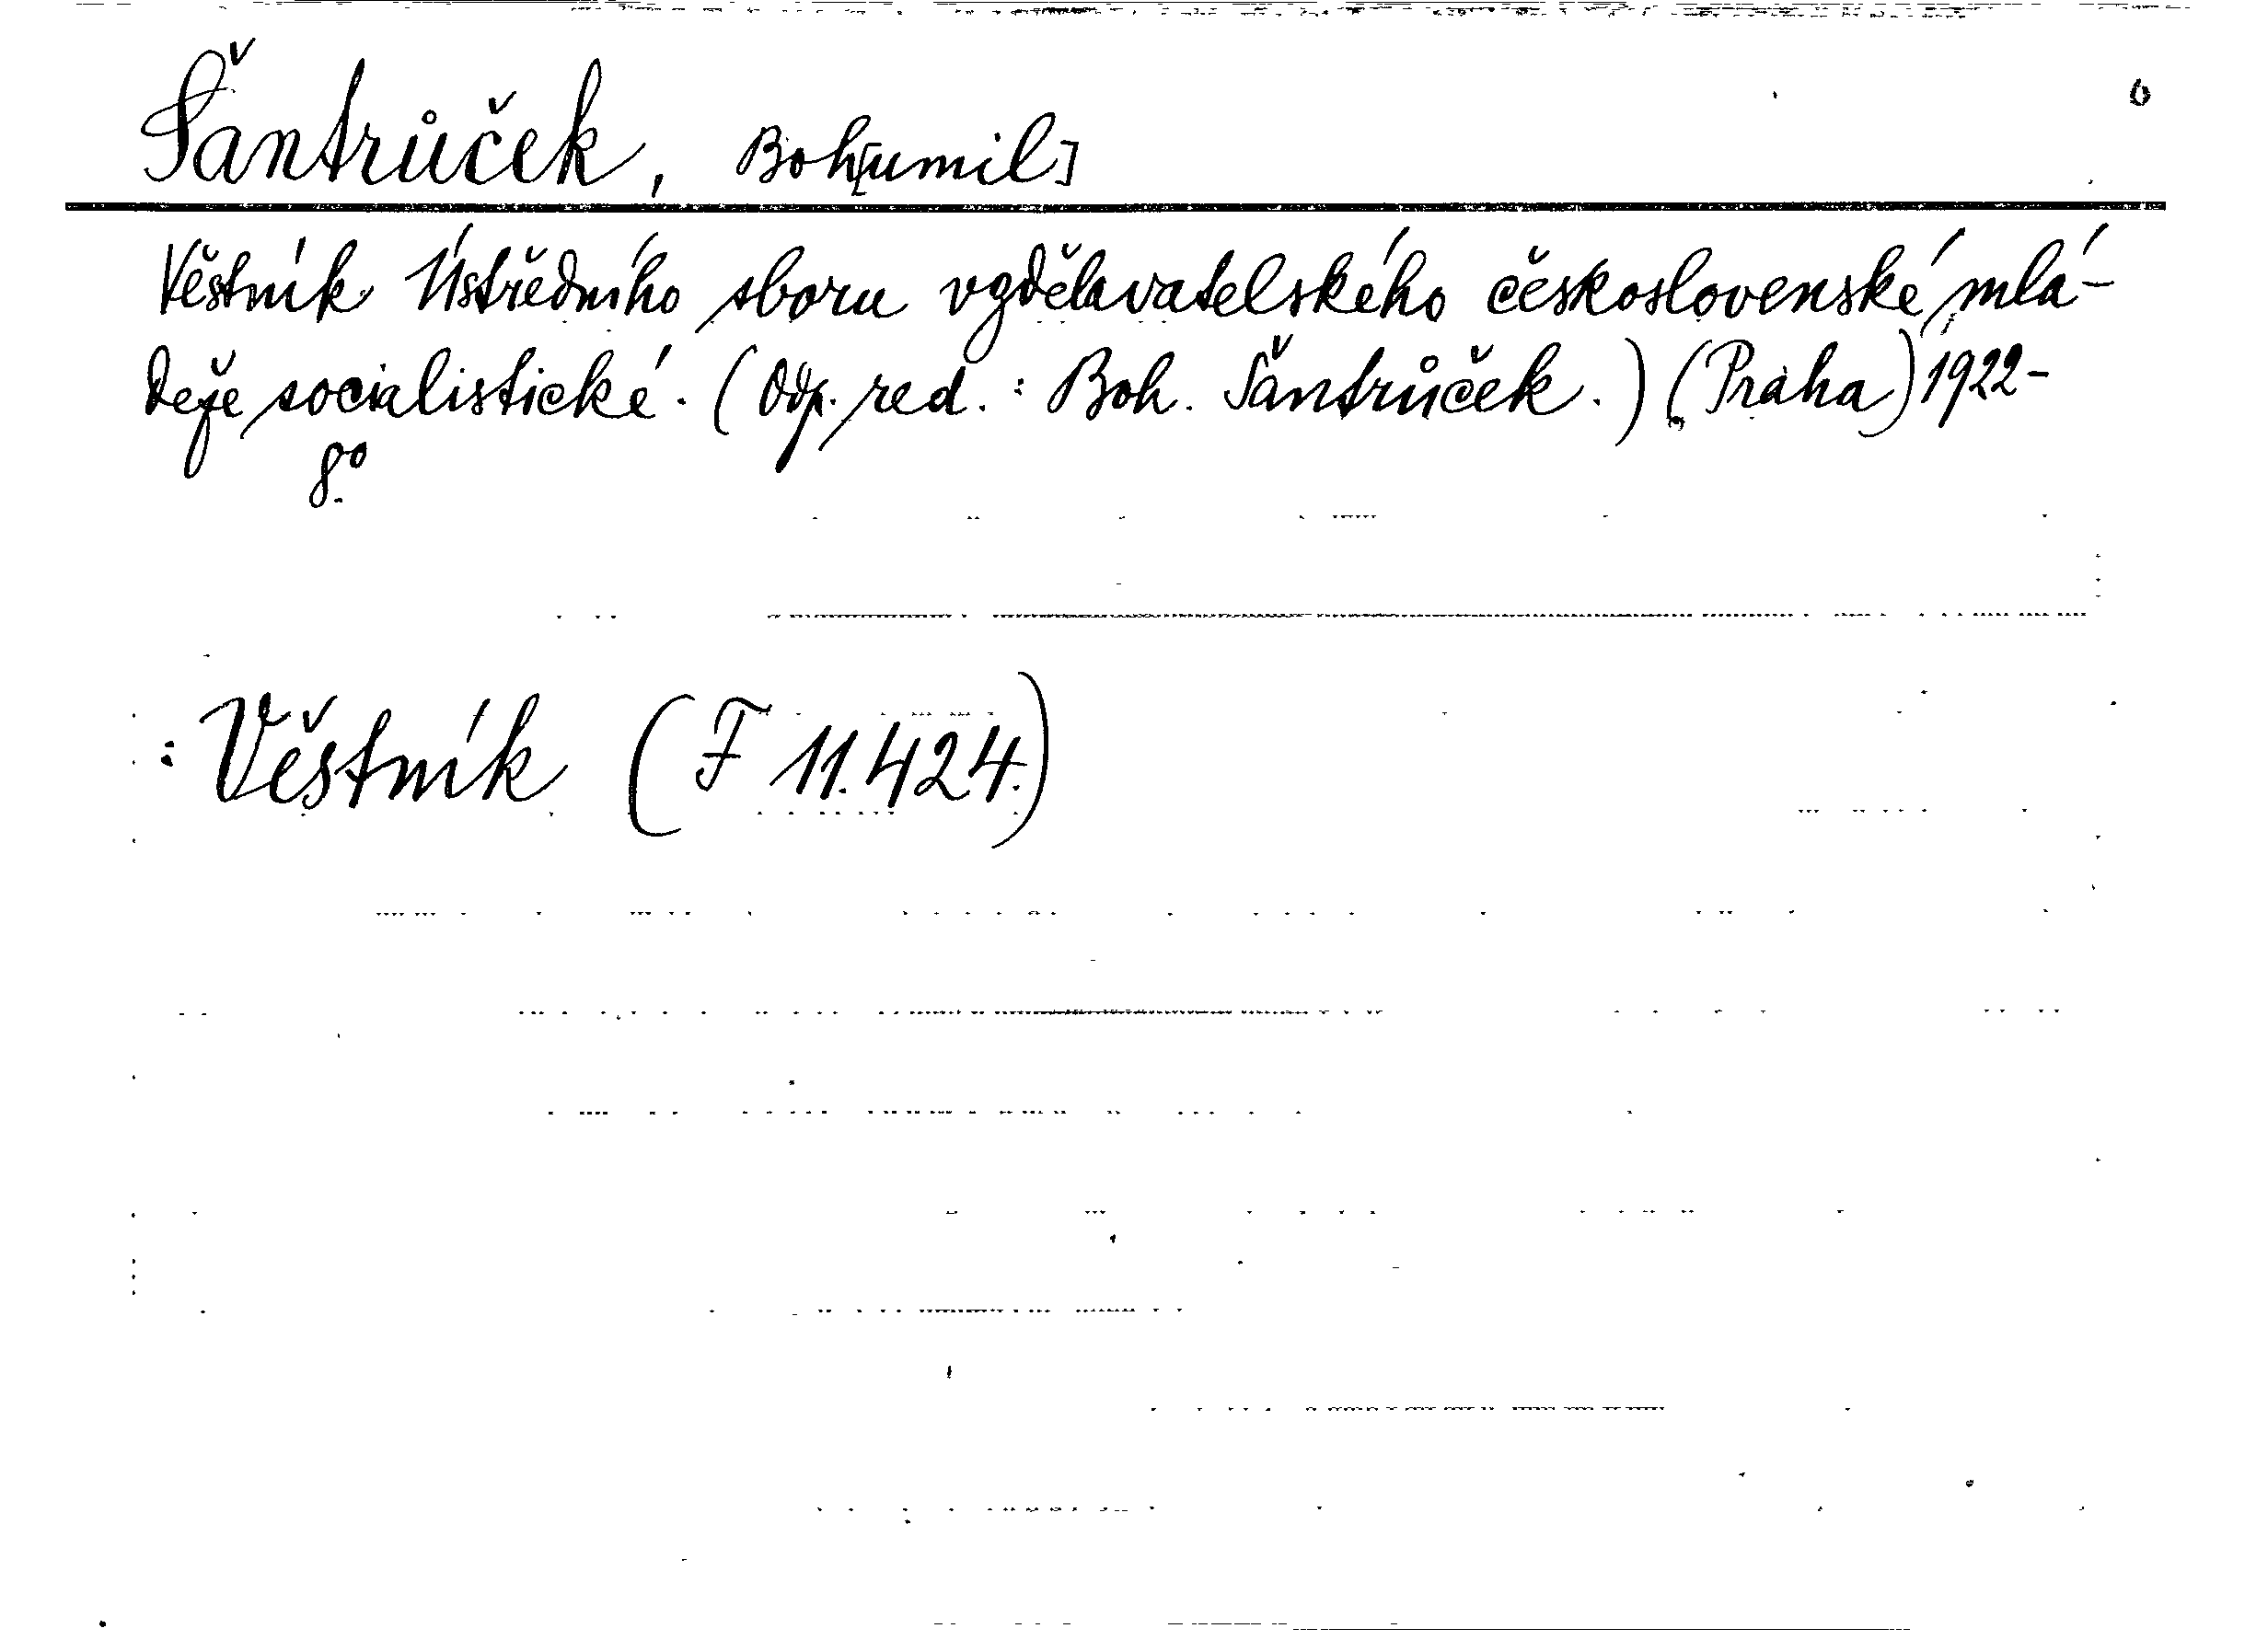 Šantrůček, Boh[umil]
Věstník Ústředního sboru vzdělavatelského československé mlá-
deže socialistické. (Odp. red.: Boh. Šantrůček.) (Praha) 1922-
8°
: Věstník (F 11.424.)